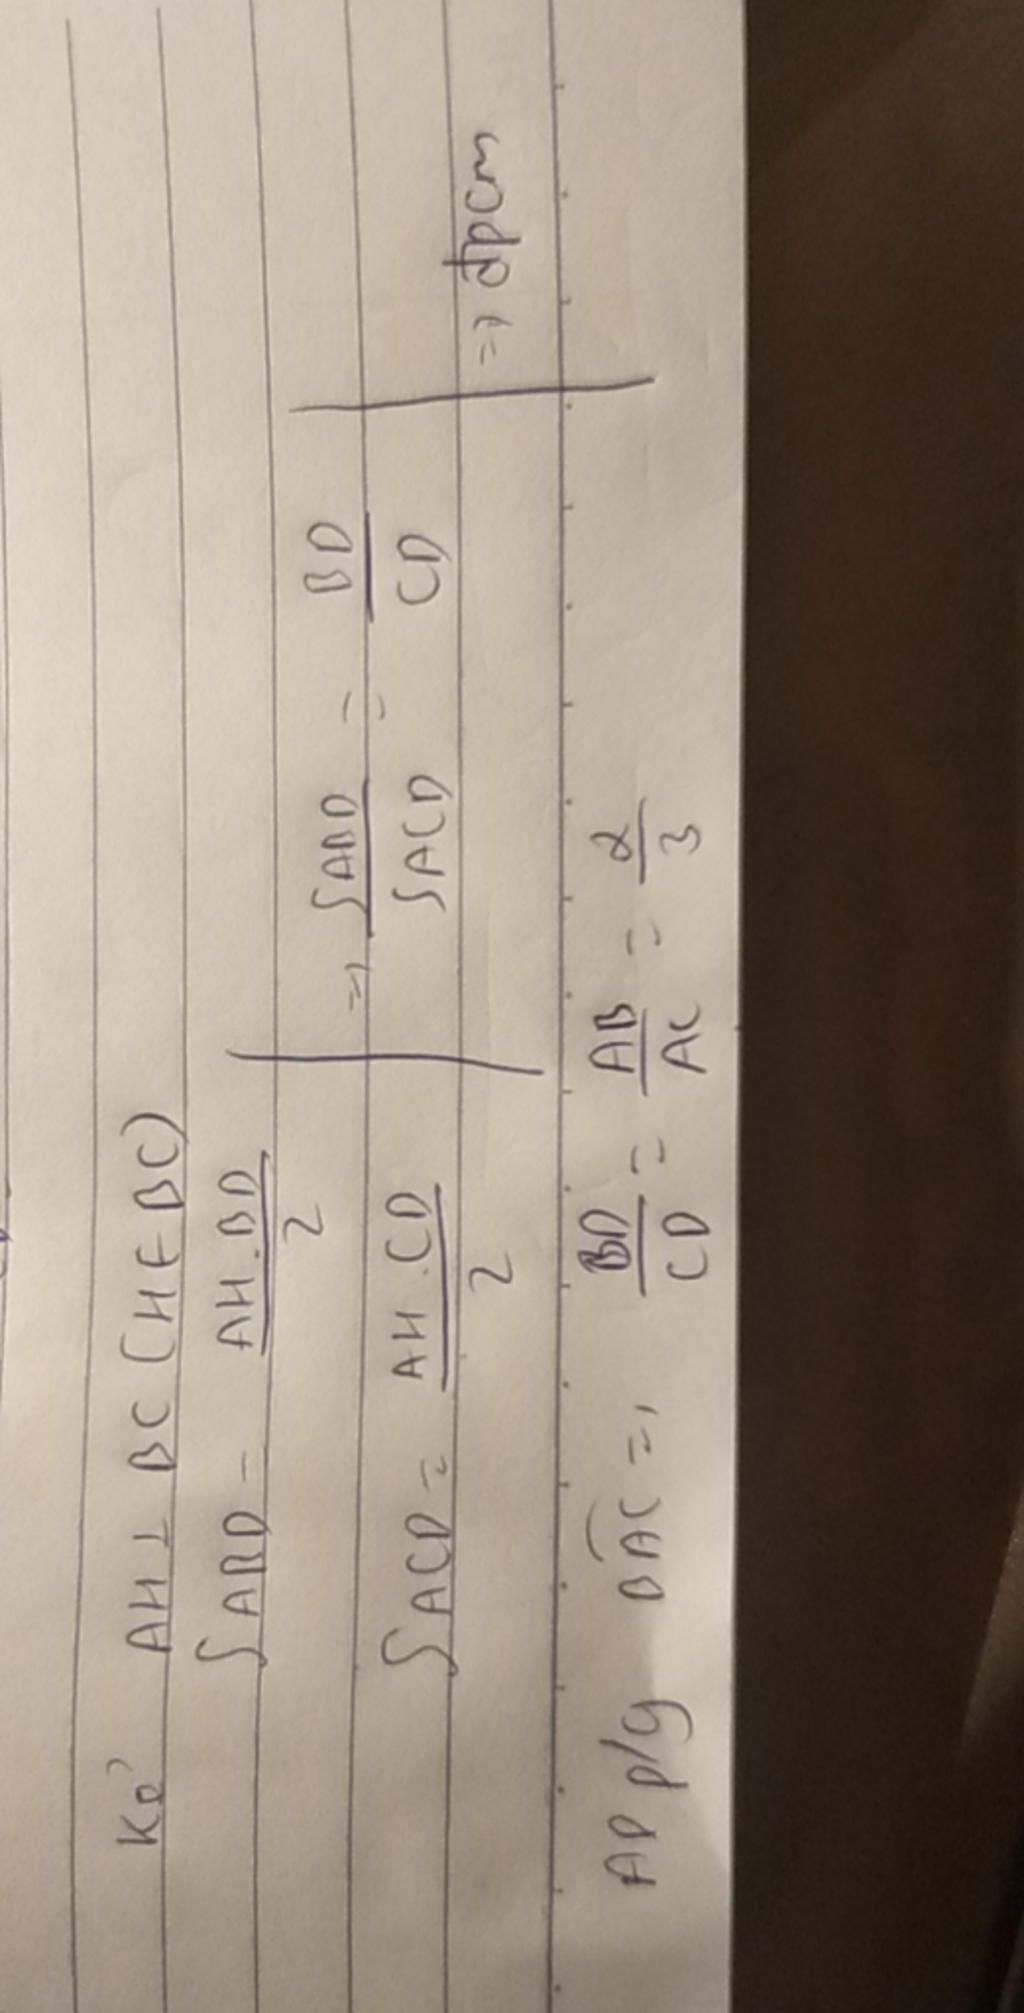 Kẻ AH ⊥ BC (H ∈ BC)
SABD = AH.BD / 2
=> SABD / SACD = BD / CD
SACD = AH.CD / 2
=> đpcm
AD p/g BAC => BD / CD = AB / AC = 2 / 3